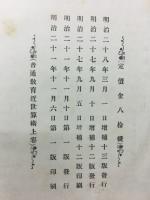 定價金八拾錢
明治二十八年三月一日增補十三版發行
明治二十七年九月十日增補十二版發行
明治二十七年九月五日增補十二版印刷
明治二十一年十一月十日第一版發行
明治二十一年十一月六日第一版印刷
普通教育近世算術上卷